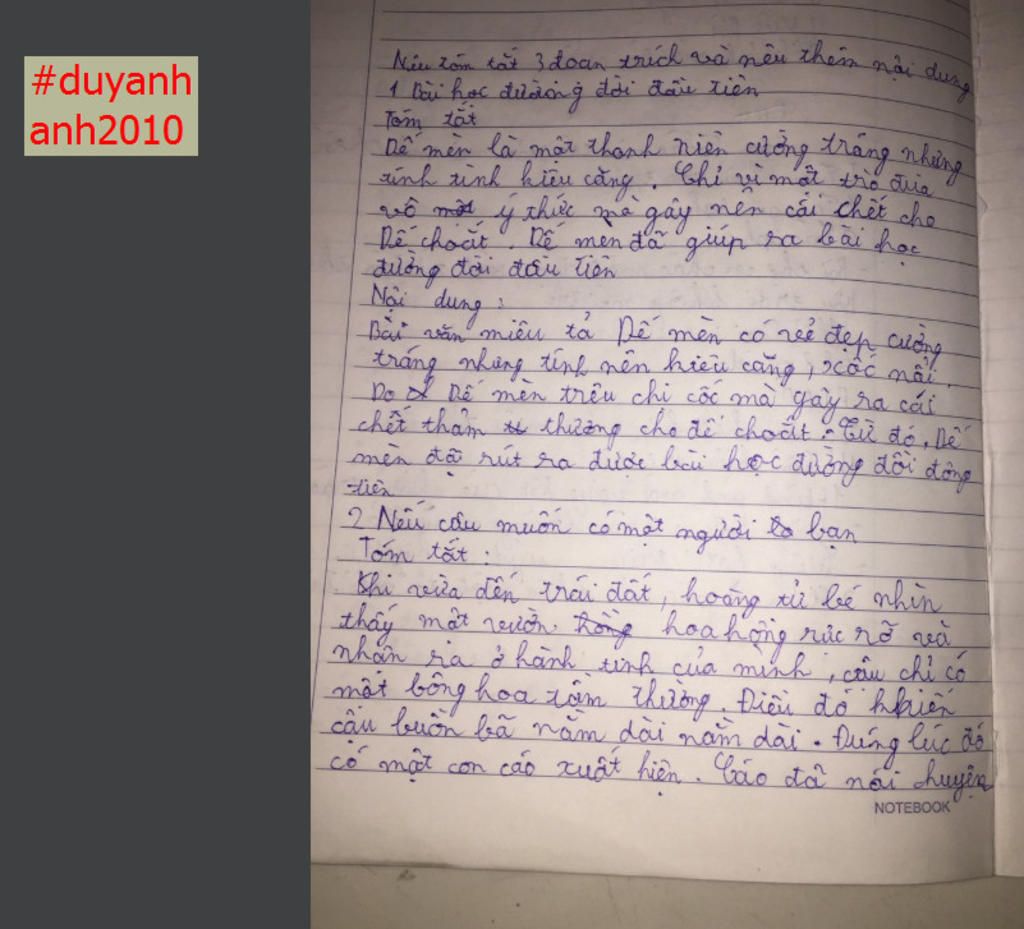 #duyanh
anh2010
Nêu tóm tắt 3 đoan trích và nêu thêm nội dung
1 Bài học đường đời đầu tiên
Tóm tắt
Dế mèn là một thanh niên cường tráng nhưng
tính tình kiêu căng. Chỉ vì một trò đùa
vô ý thức mà gây nên cái chết cho
Dế choắt. Dế mèn đã giúp ra bài học
đường đời đầu tiên
Nội dung :
Bài văn miêu tả Dế mèn có vẻ đẹp cường
tráng nhưng tính nên kiêu căng, xốc nổi.
Do Dế mèn trêu chi cốc mà gây ra cái
chết thảm thương cho dế choắt. Từ đó, Dế
mèn đã rút ra được bài học đường đời đông
tiên
2 Nếu cậu muốn có một người bạn
Tóm tắt :
Khi vừa đến trái đất, hoàng tử bé nhìn
thấy một vườn hoa hồng rực rỡ và
nhận ra ở hành tinh của mình, cậu chỉ có
một bông hoa tầm thường. Điều đó khiến
cậu buồn bã nằm dài nằm dài. Đúng lúc đó
có một con cáo xuất hiện. Cáo đã nói chuyện
NOTEBOOK